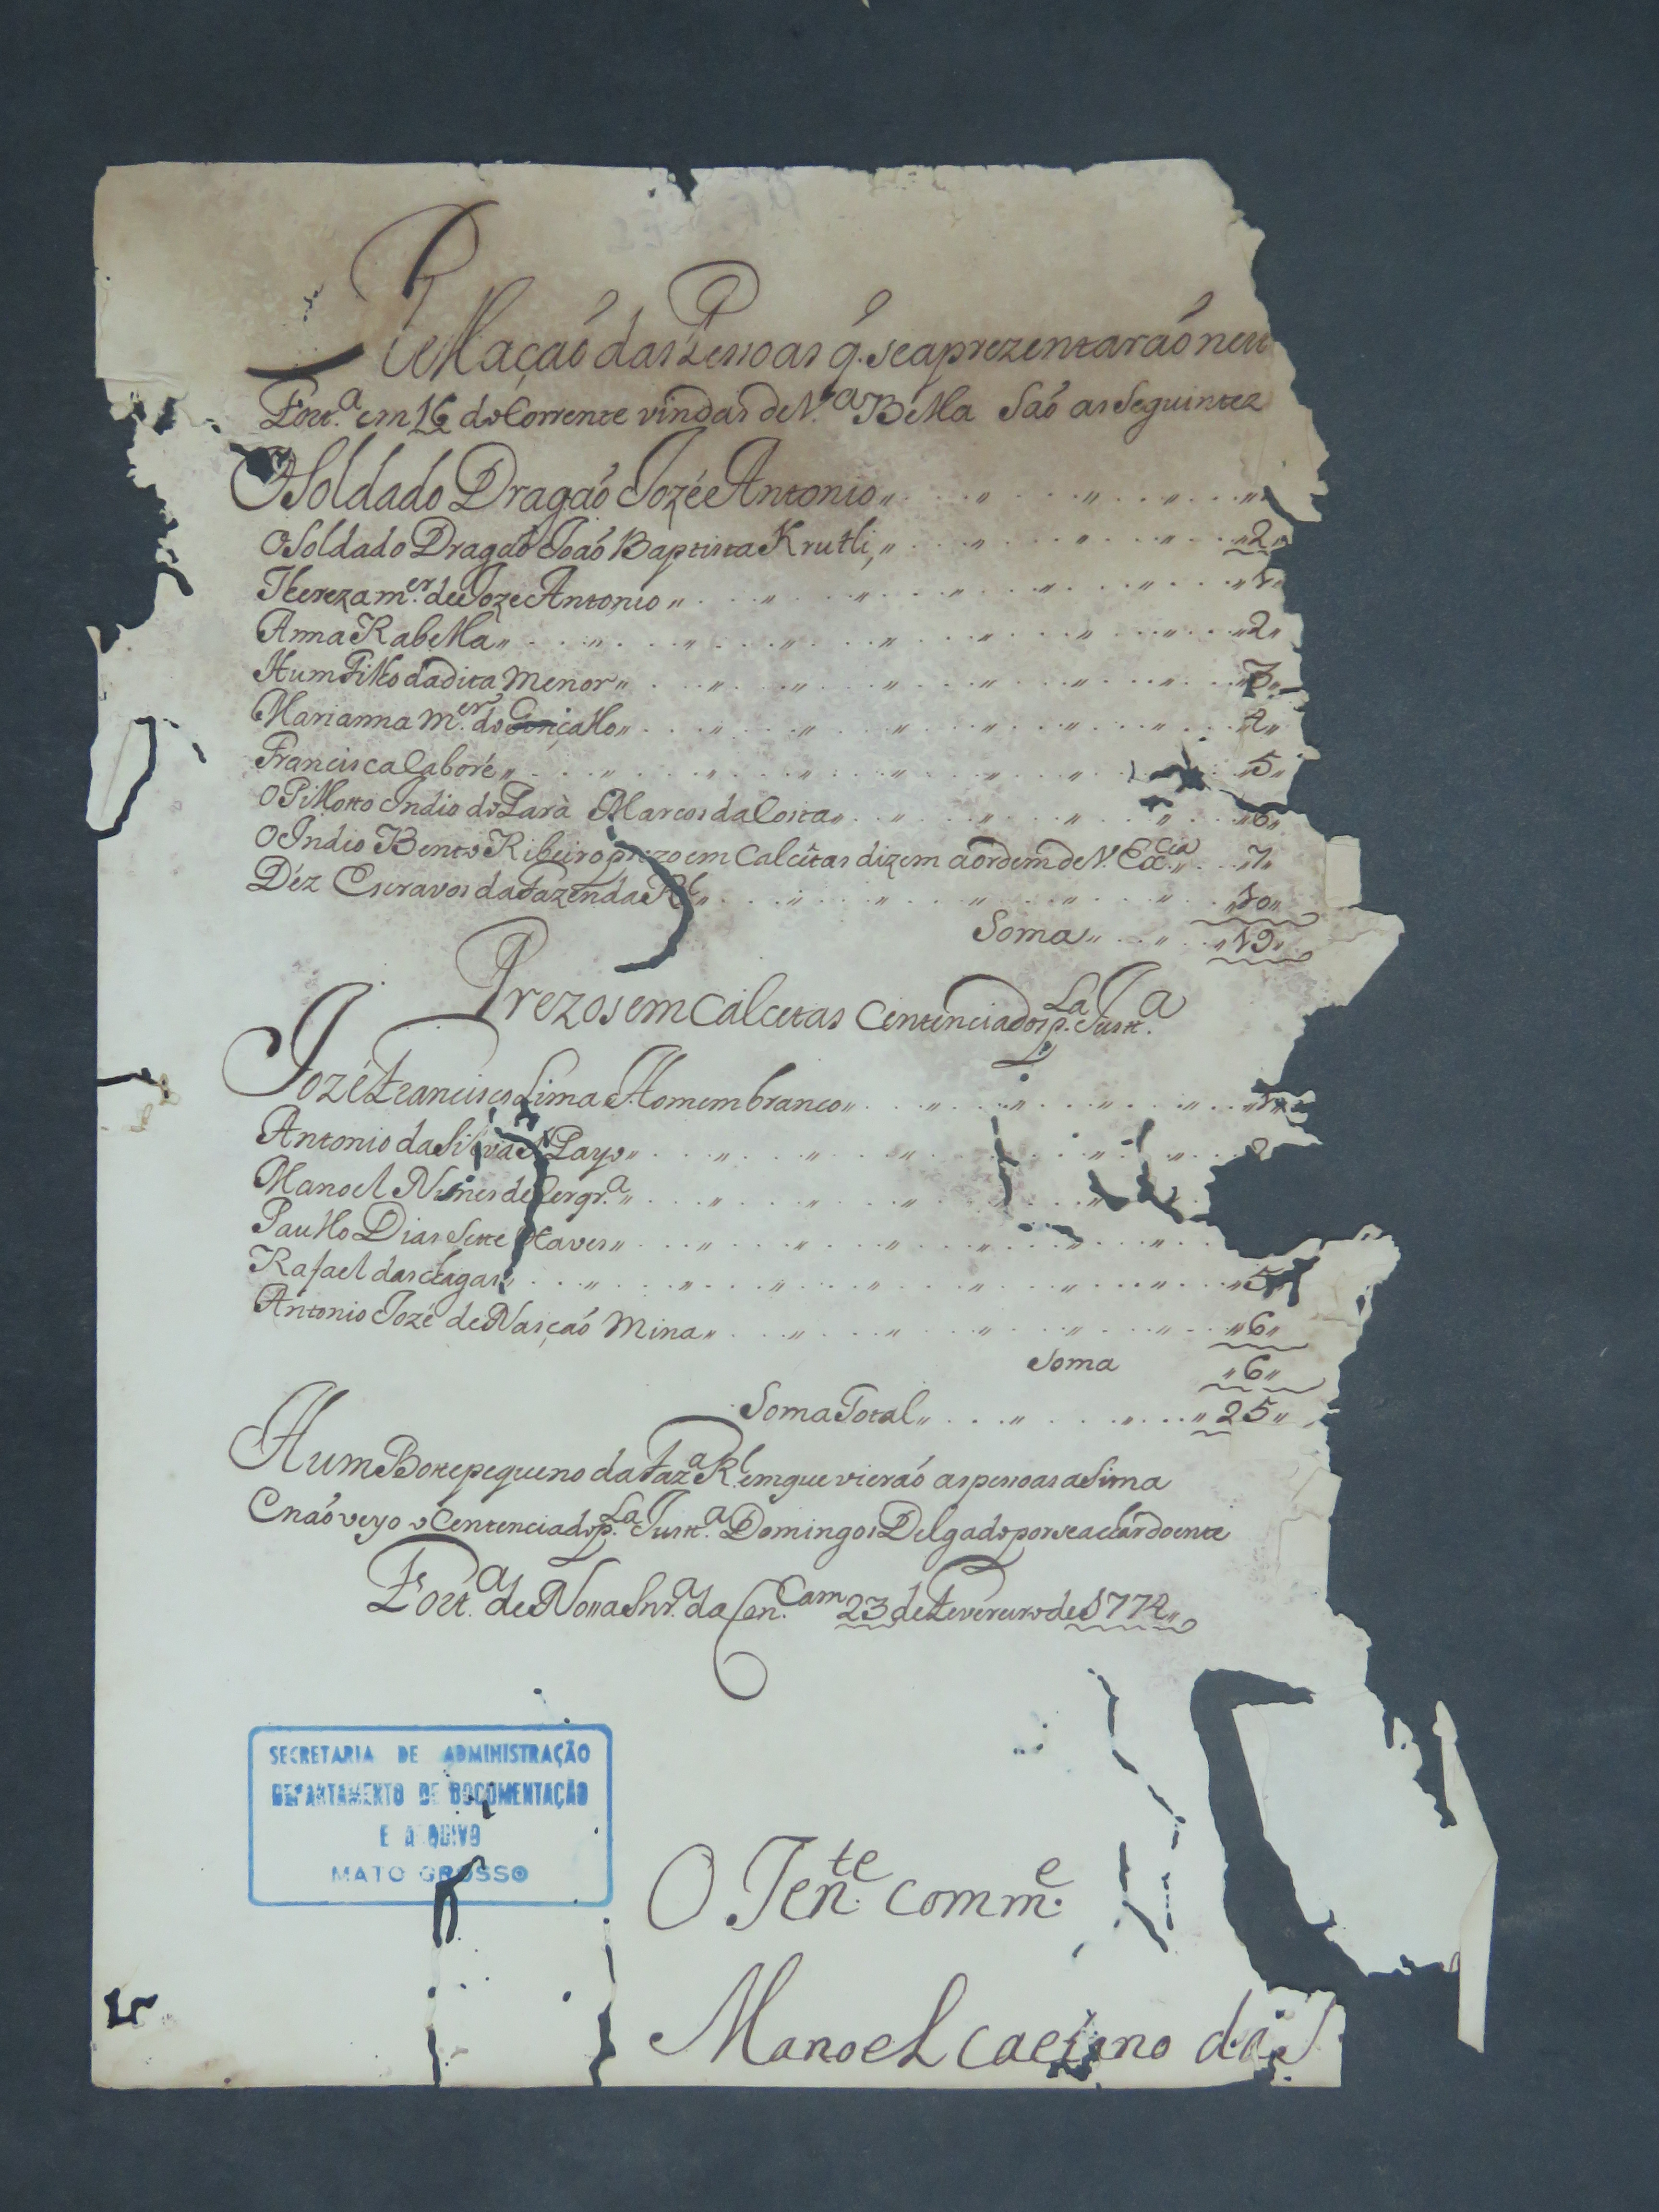 Rellação das Pessoas q. se aprezentarão nest
Fort.ª em 16 do Corrente vindas de V.ª Bella São as Seguintez
O Soldado Dragão Jozé Antonio
O Soldado Dragão João Baptista Krutli, 2
Thereza m.er de Joze Antonio 1
Anna Rabella 2
Hum Filho da dita menor 3
Marianna m.er do Gonçallo 4
Francisca Caboré 5
O Pillotto Indio do Parà Marcos da Costa 6
O Indio Bento Ribeiro prezo em Calcêtas dizem a ordem de V. Ex.cia 7
Déz Escravos da Fazenda R.l 10
Soma 19
Prezos em Calcetas Centenciados p.la Just.ª
Jozé Francisco Lima Homem branco 1
Antonio da Silva S. Payo 2
Manoel Nunes de Cergr.ª
Paullo Dias Sette Chaves
Rafael das chagas 5
Antonio Jozé de Nasção Mina 6
Soma 6
Soma Total 25
Hum Botte pequeno da Faz.ª R.l em que vierão as pessoas asima
E não veyo o Centenciado p.la Just.ª Domingos Delgado por se achar doente
Fort.ª de Nossa Snr.ª da Con.cam 23 de Fevereiro de 1774
SECRETARIA DE ADMINISTRAÇÃO
DEPARTAMENTO DE DOCUMENTAÇÃO
E ARQUIVO
MATO GROSSO
O Ten.te comm.e
Manoel Caetano da S